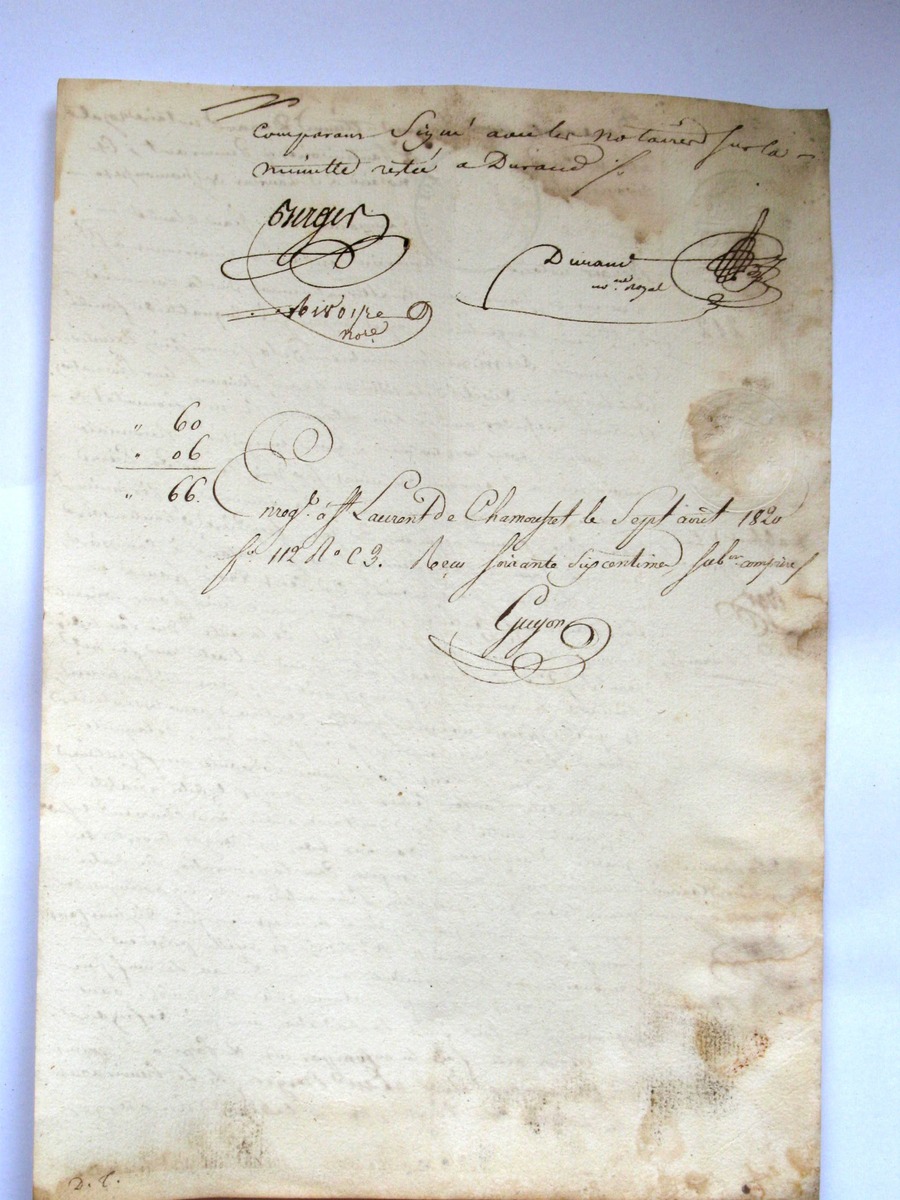 Comparans signé avec les notaires sur la
minutte restée a Durand
Burgis
Durand
no.re Royal
Rivoire
No.re
" 60
" 06
" 66.
Enreg.é à S.t Laurent de Chamousset le Sept août 1820
f.o 112 R.o C 3. Reçu soixante six centimes sub.on comprise
Guyon
D. C.